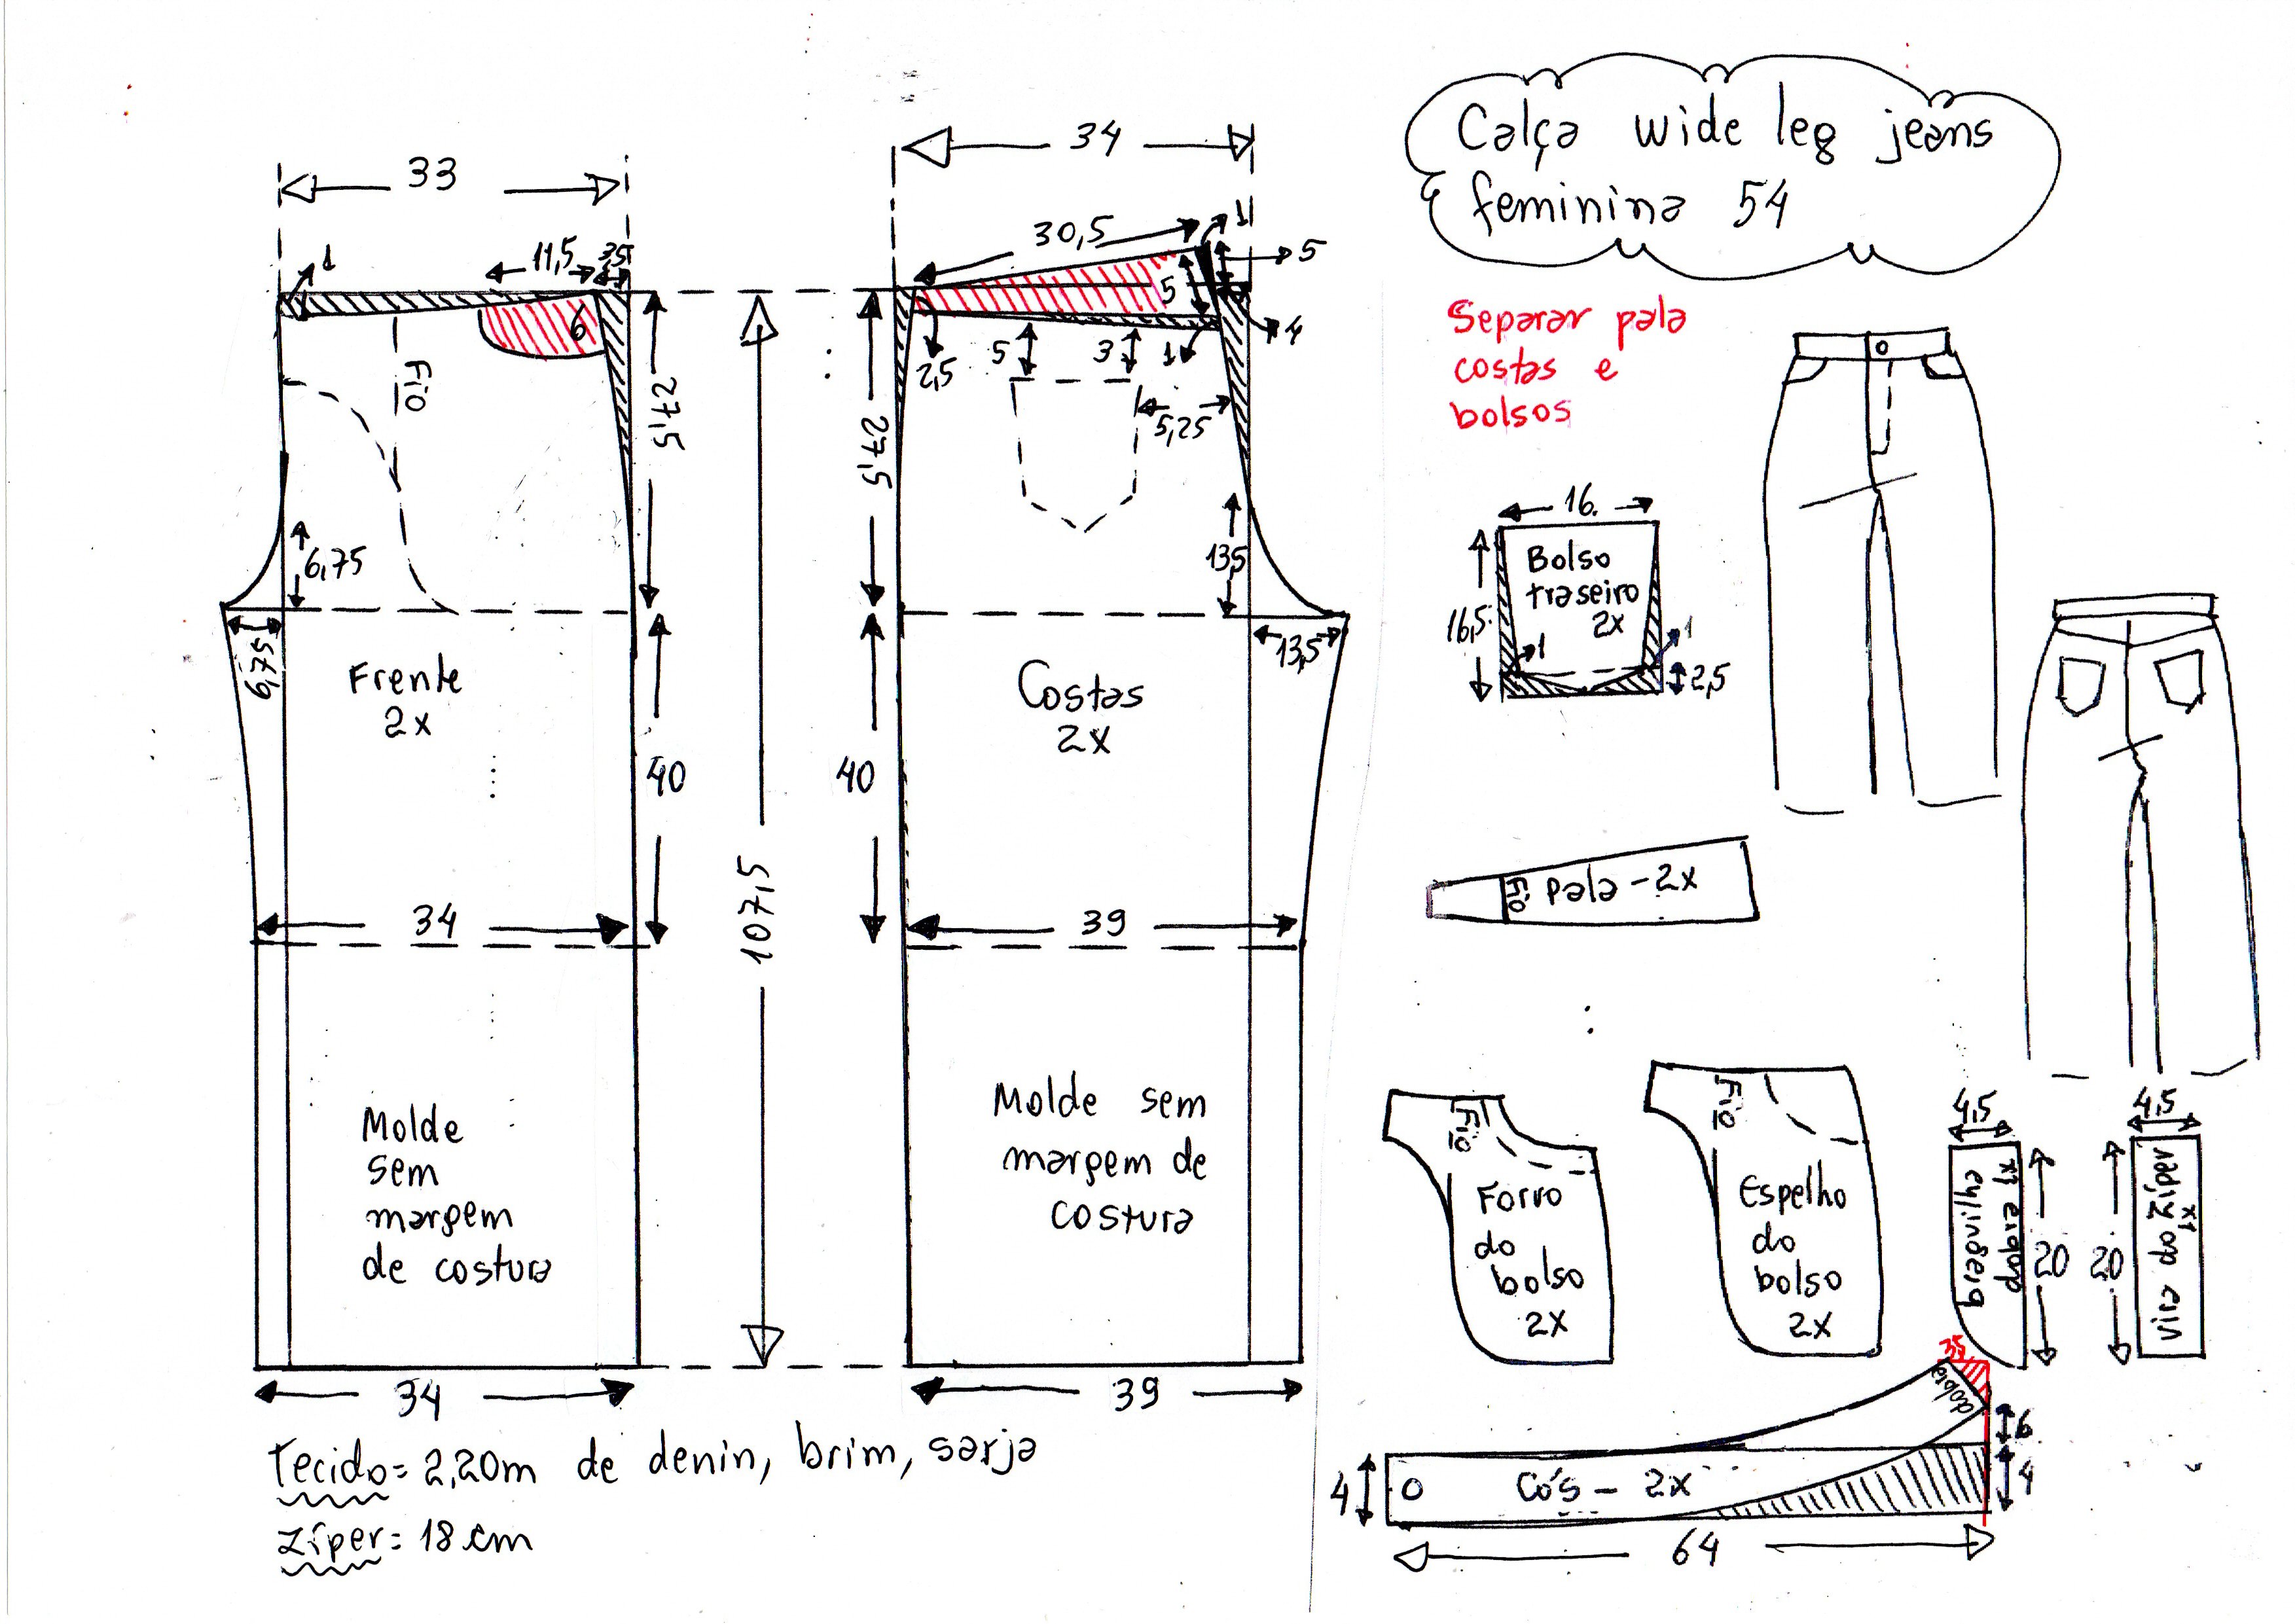 Calça wide leg jeans
feminina 54
33
11,5
3,5
1
6
Fio
27,5
6,75
6,75
Frente
2x
40
34
107,5
Molde
sem
margem
de costura
34
34
30,5
1
5
5
4
2,5
5
3
1
27,5
5,25
13,5
13,5
Costas
2x
40
39
Molde sem
margem de
costura
39
Separar pala
costas e
bolsos
16
Bolso
traseiro
2x
16,5
1
1
2,5
Fio
pala - 2x
Fio
Forro
do
bolso
2x
Fio
Espelho
do
bolso
2x
4,5
braguilha
dobra 1x
20
4,5
vira do zíper
1x
20
3,5
dobra
6
4
4
Cós - 2x
64
Tecido = 2,20m de denin, brim, sarja
Zíper = 18 cm